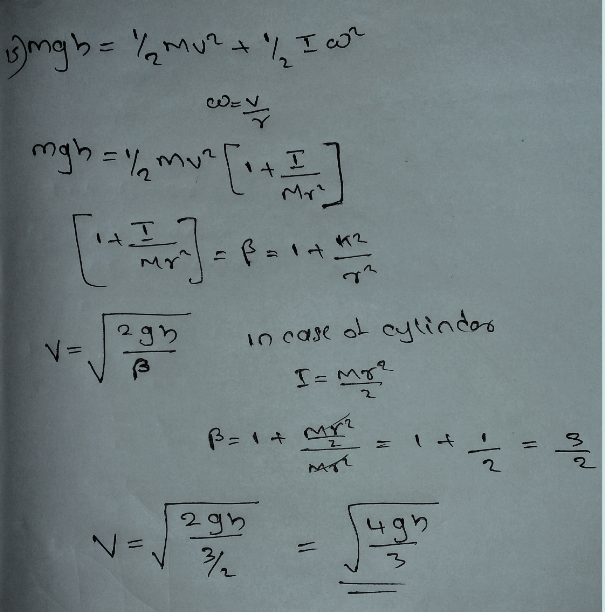 15) mgh = 1/2 mv² + 1/2 I ω²
ω = v/r
mgh = 1/2 mv² [1 + I/Mr²]
[1 + I/Mr²] = β = 1 + K2/r²
V = √(2gh/β) in case of cylinder
I = Mr²/2
β = 1 + (Mr²/2)/Mr² = 1 + 1/2 = 3/2
V = √(2gh/(3/2)) = √(4gh/3)